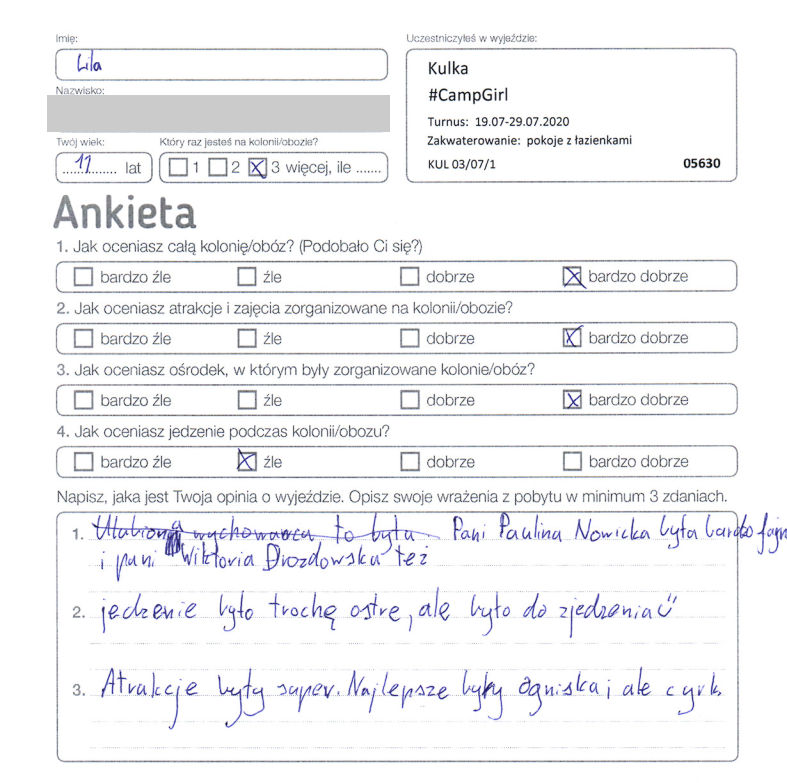 Imię:
Lila
Nazwisko:
Twój wiek:
11 lat
Który raz jesteś na kolonii/obozie?
1 2 3 więcej, ile .......
Uczestniczyłeś w wyjeździe:
Kulka
#CampGirl
Turnus: 19.07-29.07.2020
Zakwaterowanie: pokoje z łazienkami
KUL 03/07/1 05630
Ankieta
1. Jak oceniasz całą kolonię/obóz? (Podobało Ci się?)
bardzo źle źle dobrze bardzo dobrze
2. Jak oceniasz atrakcje i zajęcia zorganizowane na kolonii/obozie?
bardzo źle źle dobrze bardzo dobrze
3. Jak oceniasz ośrodek, w którym były zorganizowane kolonie/obóz?
bardzo źle źle dobrze bardzo dobrze
4. Jak oceniasz jedzenie podczas kolonii/obozu?
bardzo źle źle dobrze bardzo dobrze
Napisz, jaka jest Twoja opinia o wyjeździe. Opisz swoje wrażenia z pobytu w minimum 3 zdaniach.
1. Ulubioną wychowawcą to była Pani Paulina Nowicka była bardzo fajn
i pani Wiktoria Drozdowska też
2. jedzenie było trochę ostre, ale było do zjedzenia
3. Atrakcje były super. Najlepsze były ogniska i ale cyrk